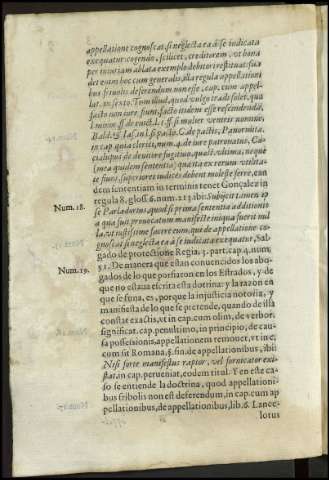 appellatione cognoscat si neglecta ea à se iudicata
exequatur cogendo, scilicet, creditorem, vt bona
per iniuriam ablata exemplo debitori restituat: sua
det enim hoc cum generalis, illa regula appellationi
bus friuolis deferendum non esse, cap. cum appel-
lat. in sexto. Tum illud, quod vulgo tradi solet, quæ
facto non iure fiunt, facto itidem esse rescindendâ,
l. minor. ff. de euict. l. 1. ff. si mulier ventris nomin.
Bald. & Ias. in l. si pacto. C. de pactis, Panormita.
in cap. quia clerici, num. 4. de iure patronatus, Cu-
cialupus de deuitore fugitiuo, quæst. vltima, neque
(mea quidem sententia) quæ ita ex rerum vtilita-
te fiunt, superiores iudices debent moleste ferre, ean
dem sententiam in terminis tenet Gonçalez in
regula 8. gloss. 6. num. 213. ibi: Subijcit tamen ip
Num. 18.
se Parladorius, quod si prima sententia à ditione
a qua sint prouocatum manifeste iniqua fuerit nul
la, vt iustissime facere eum, qui de appellatione co-
gnoscat si neglecta ea à se iudicata exequatur, Sal-
gado de protectione Regia, 3. part. cap. 4. num.
Num. 19.
51. De manera que estan conuencidos los abo-
gados de lo que porfiaron en los Estrados, y de
que no estaua escrita esta dotrina: y la razon en
que se funda, es, porque la injusticia notoria, y
manifesta de lo que se pretende, quando de illa
constat exactis, vt in cap. cum olim, de verbor.
significat. cap. penultimo, in principio, de cau-
sa possessionis, appellationem remouet, vt in c.
cum sit Romana, §. fin. de appellationibus, ibi:
Nisi forte manifestus raptor, vel fornicator exi-
stat, in cap. perueniat, eodem titul. Y en este ca-
so se entiende la doctrina, quod appellationi-
bus fribolis non est deferendum, in cap. cum ap
pellationibus, de appellationibus, lib. 6. Lance-
lotus